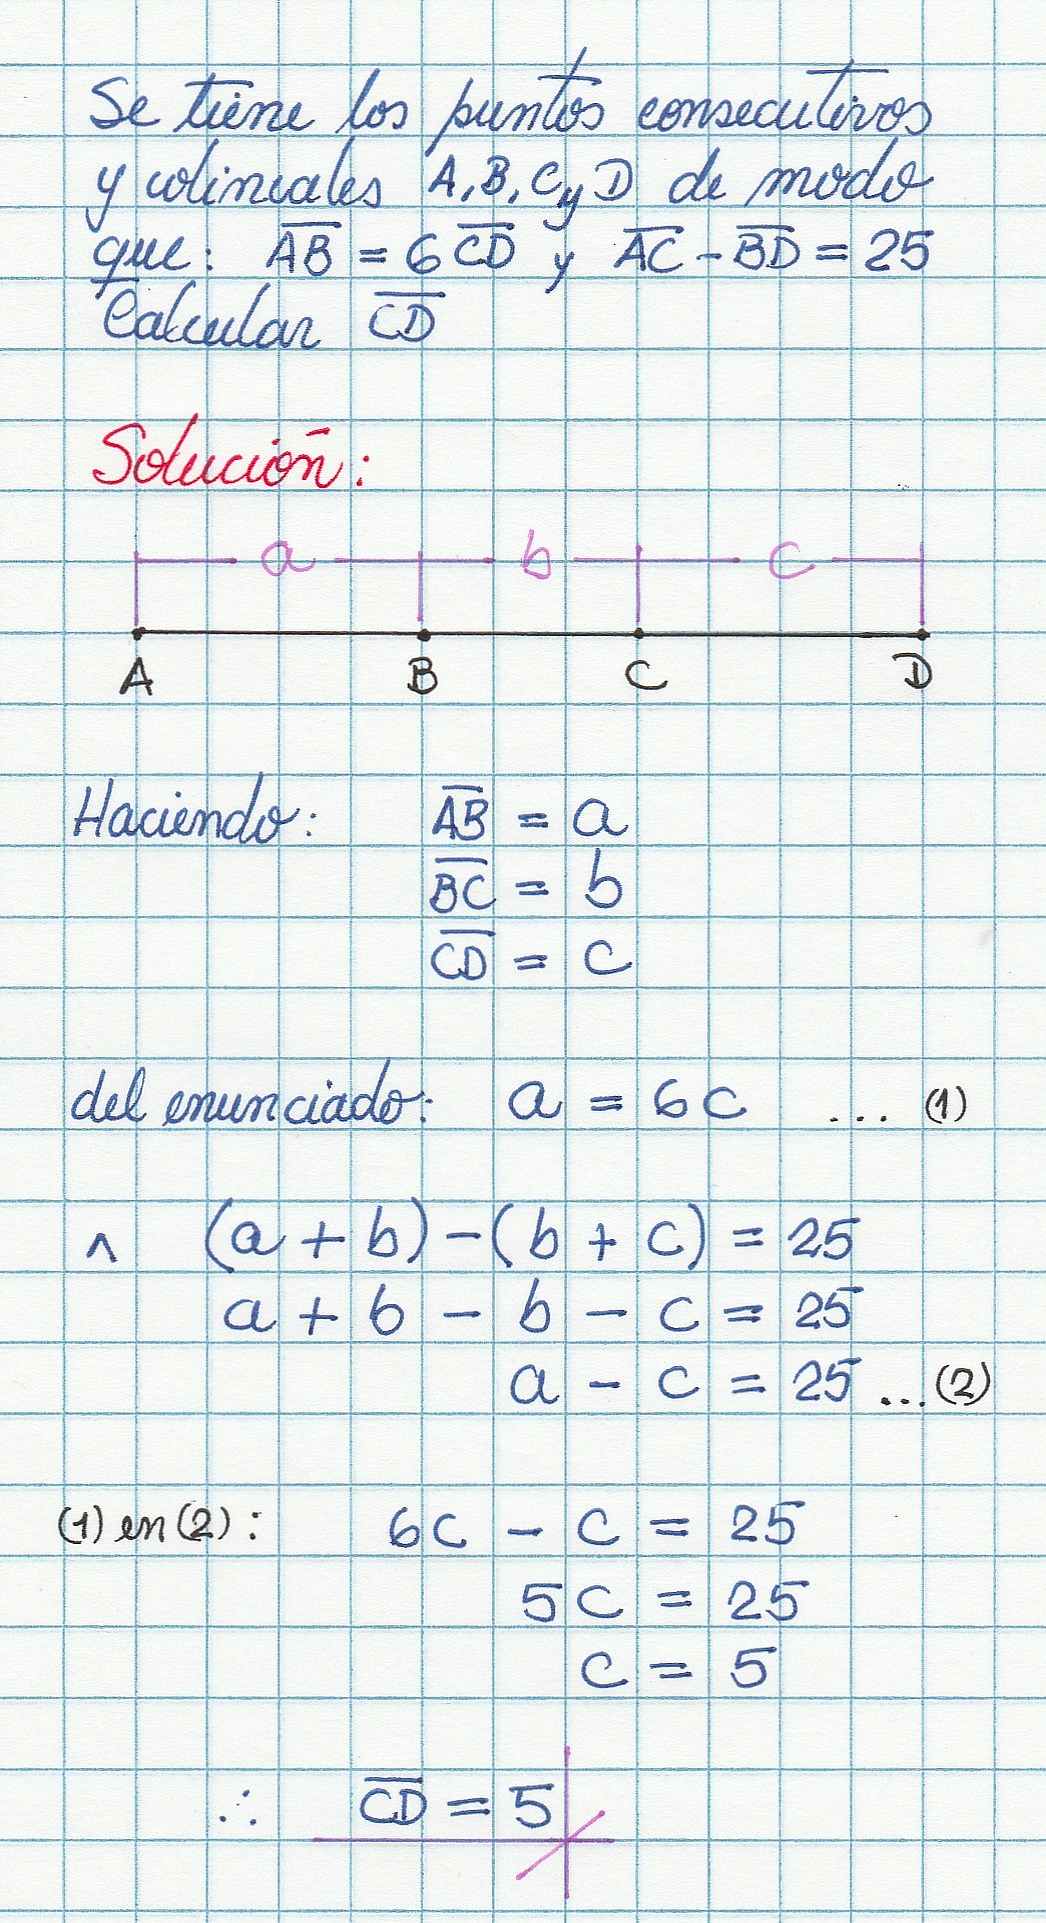 Se tiene los puntos consecutivos
y colineales A, B, C y D de modo
que: A̅B̅ = 6 C̅D̅ y A̅C̅ - B̅D̅ = 25
Calcular C̅D̅
Solución:
a b c
A B C D
Haciendo: A̅B̅ = a
B̅C̅ = b
C̅D̅ = c
del enunciado: a = 6c ... (1)
^ (a + b) - (b + c) = 25
a + b - b - c = 25
a - c = 25 ... (2)
(1) en (2): 6c - c = 25
5c = 25
c = 5
∴ C̅D̅ = 5